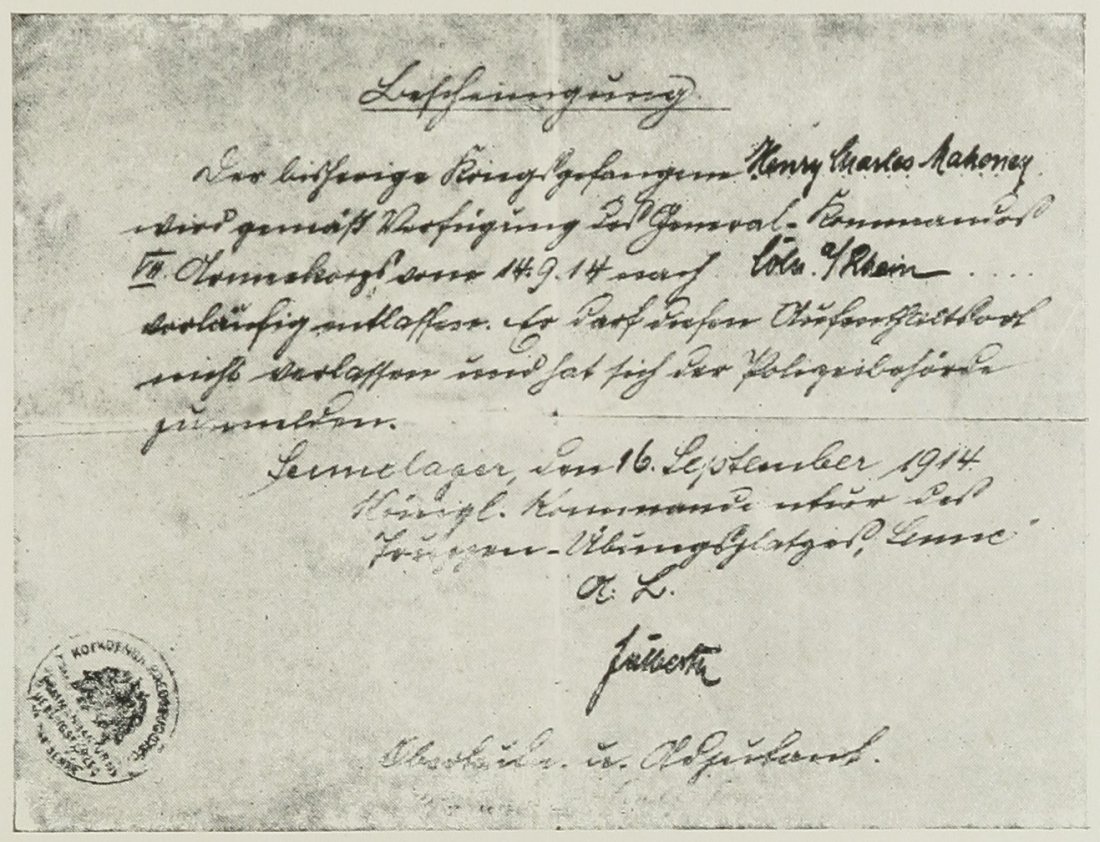 Bescheinigung
Der bisherige Kriegsgefangene Henry Charles Mahoney
wird gemäß Verfügung des General-Kommandos
VII. Armeekorps vom 14.9.14 nach Cöln a/Rhein .....
vorläufig entlassen. Er darf diesen Aufenthaltsort
nicht verlassen und hat sich der Polizeibehörde
zu melden.
Sennelager, den 16. September 1914
Königl. Kommandantur des
Truppen-Übungsplatzes, Senne
A. B.
Oberleutn. u. Adjutant.